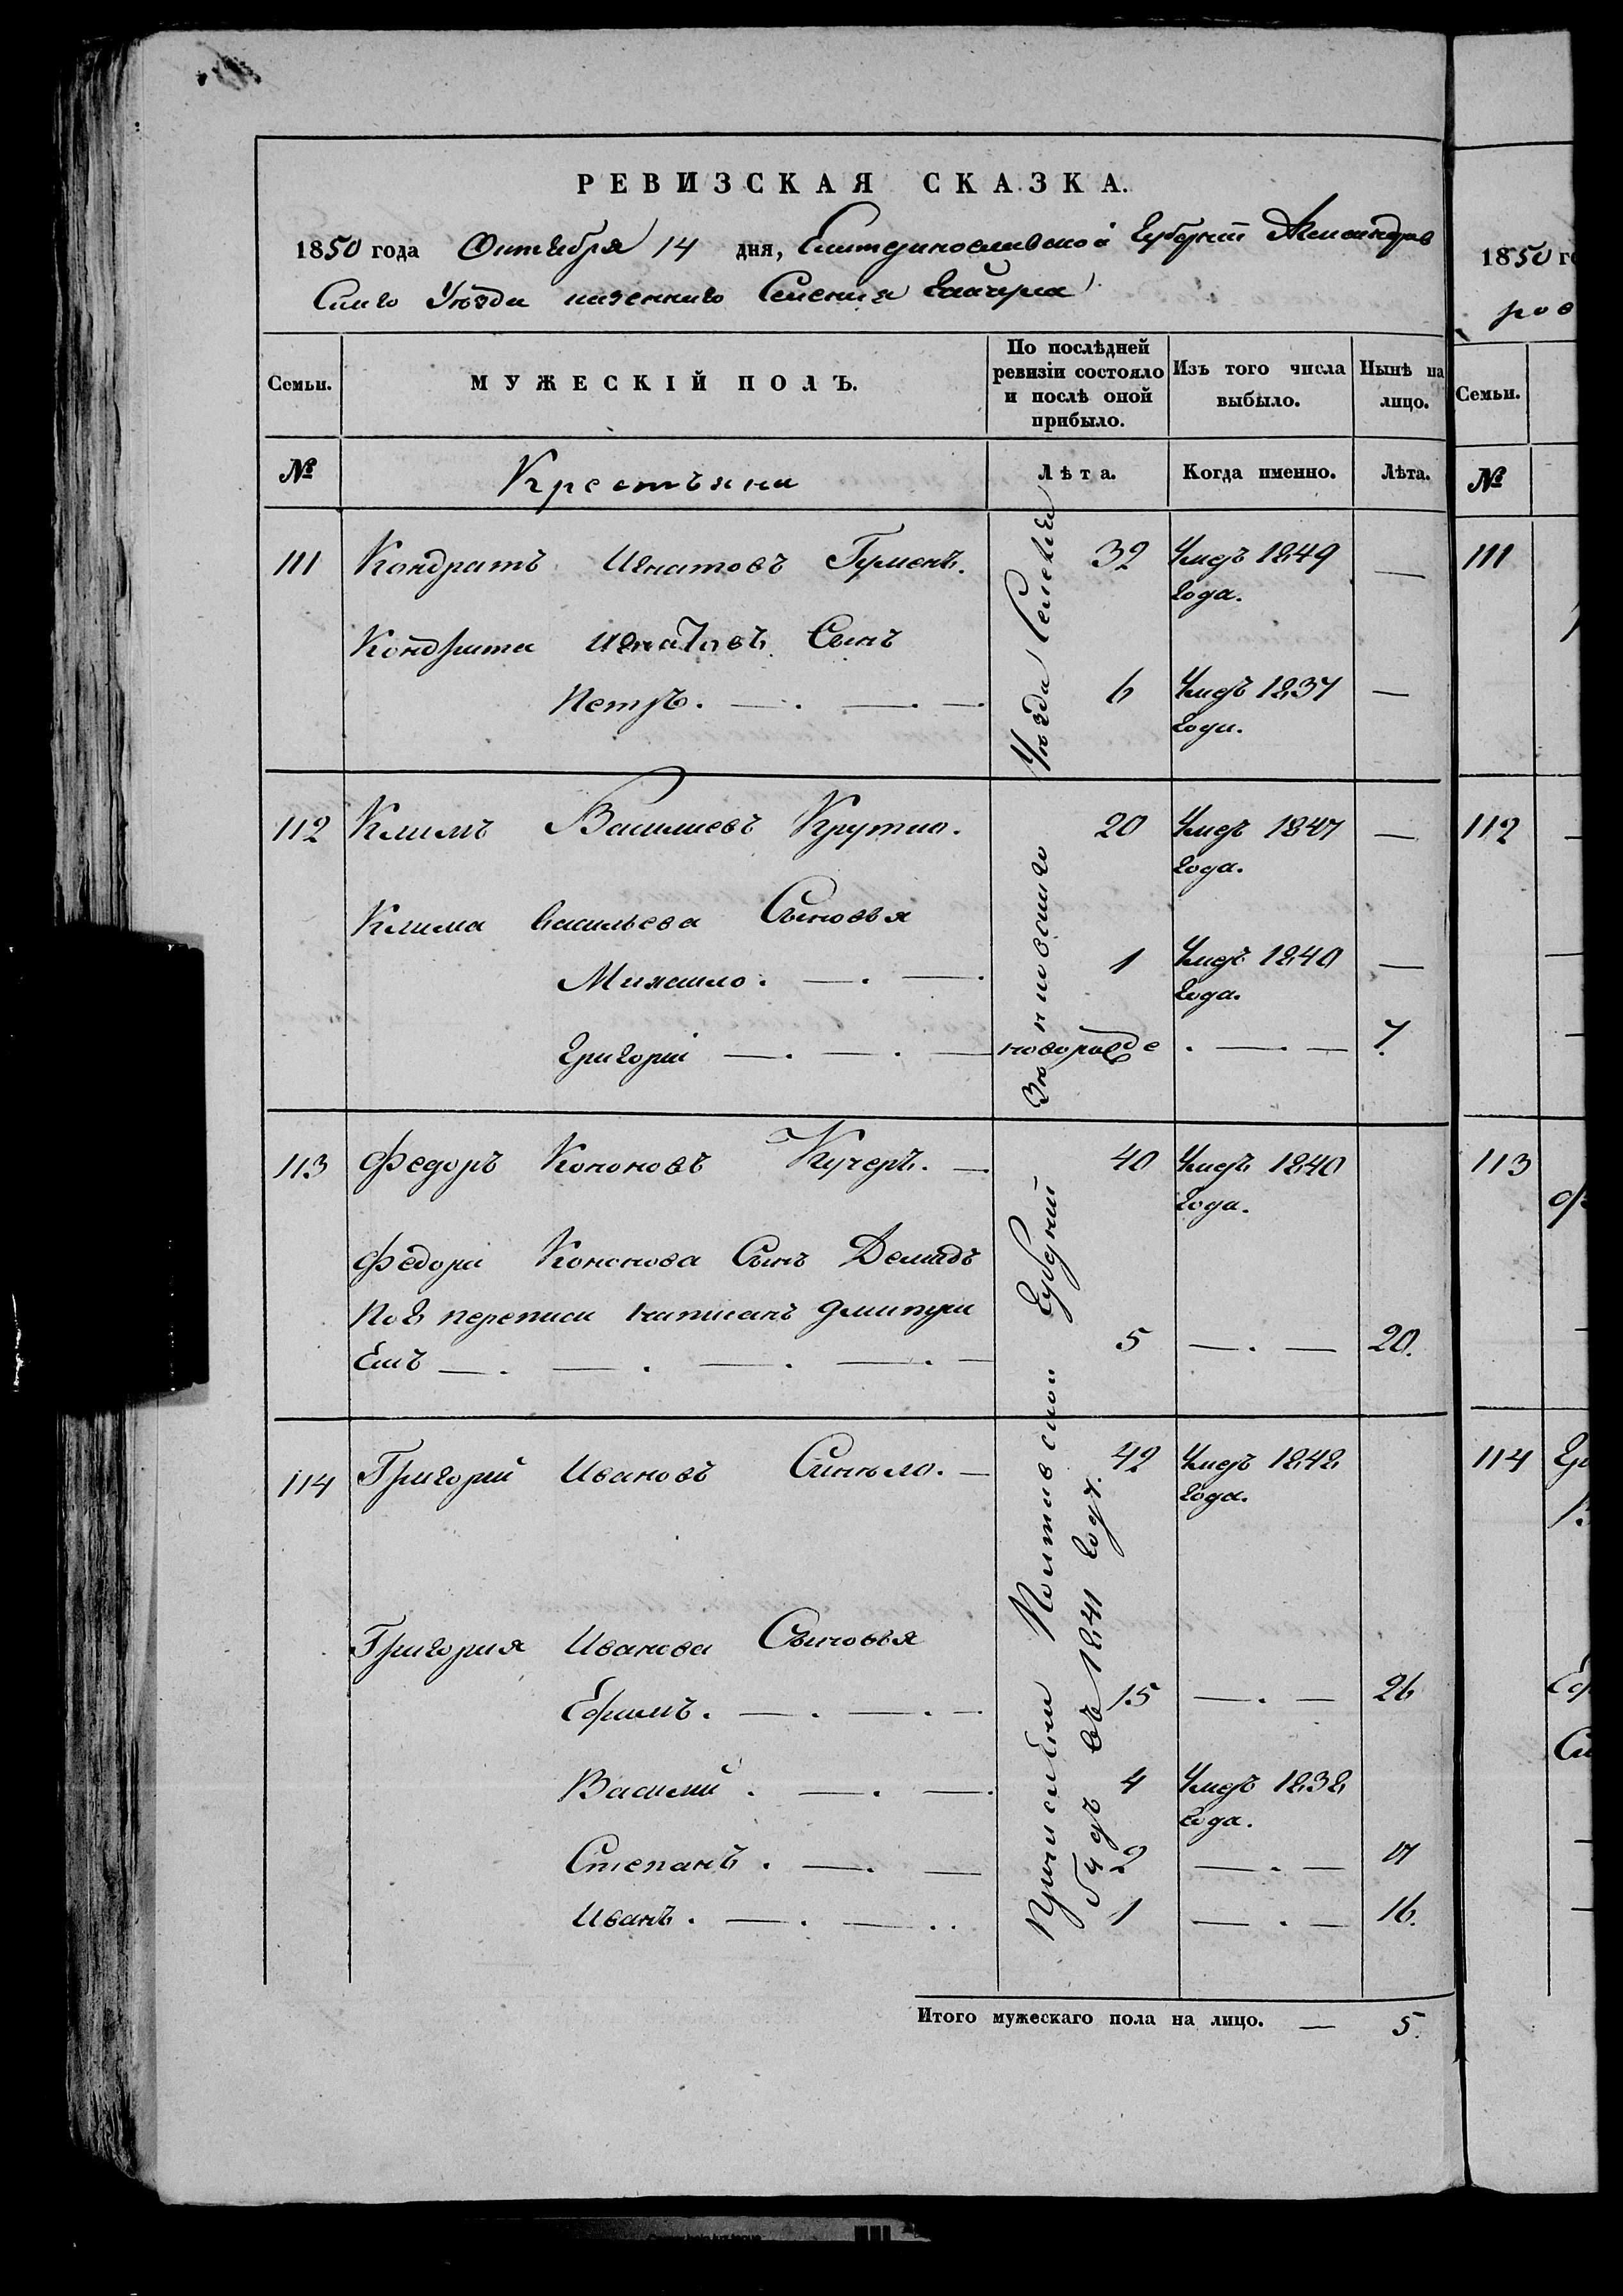 РЕВИЗСКАЯ СКАЗКА.
1850 года Октября 14 дня, Екатеринославской Губерніи Александров
Скаго Уѣзда казеннаго Селения Гайчула
Семьи. МУЖЕСКІЙ ПОЛЪ. По послѣдней ревизіи состояло и послѣ оной прибыло. Изъ того числа выбыло. Нынѣ на лицо.
№ Крестьяни Лѣта. Когда именно. Лѣта.
111 Кондратъ Игнатовъ Гуменъ. 32 Умеръ 1849 —
года.
Кондрата Игнатовъ Сынъ
Петръ. —. —. — 6 Умеръ 1837 —
года.
112 Климъ Василиевъ Крутко. 20 Умеръ 1847 —
года.
Клима васильева Сыновья
Михаило. —. —. 1 Умеръ 1840 —
года.
Григорій —. —. — новорожде . —. — 7.
113 Федоръ Кононовъ Кучеръ. — 40 Умеръ 1840
года.
Федора Кононова Сынъ Демидъ
По 8 переписи написанъ дмитри
Емъ —. —. —. —. — 5 —. — 20.
114 Григорий Ивановъ Синьло. — 42 Умеръ 1848
года.
Григория Иванова Сыновья
Ефимъ. —. —. — 15 —. — 26
Василий . —. —. 4 Умеръ 1838
года.
Степанъ . —. — 2 —. — 17
Иванъ. —. —.. 1 —. — 16.
Причисленни Полтавской Губерний Зѣньковскаго Уѣзда
будъ въ 1841 году.
Итого мужескаго пола на лицо. — 5.
1850 го
ров
Семьи.
№
111
112
113
114